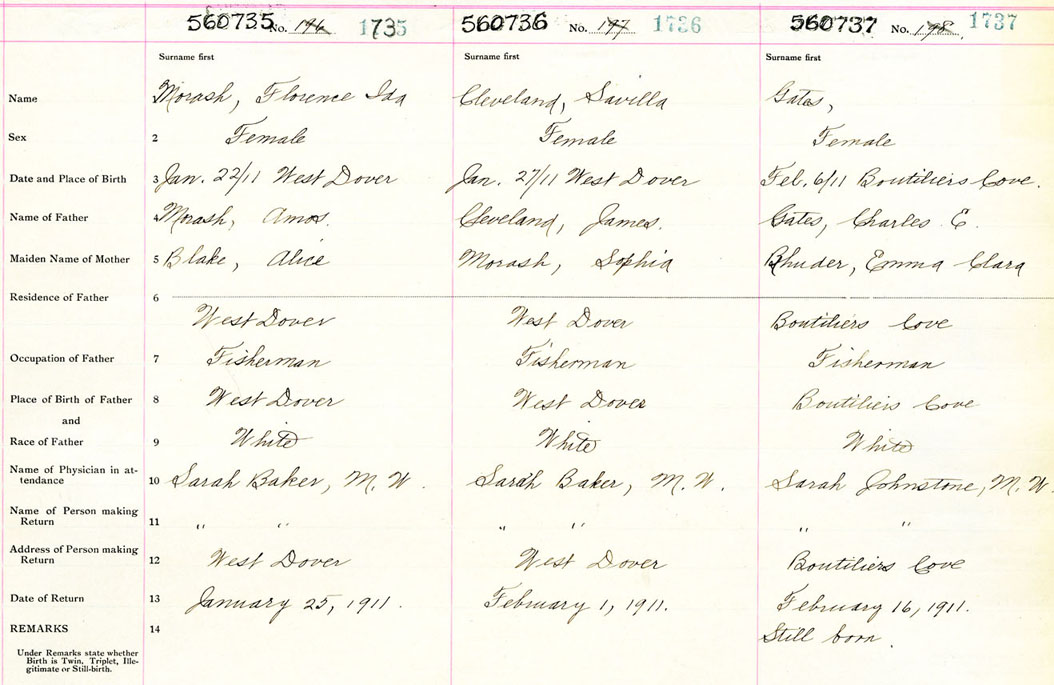 560735 No. 194 1735 560736 No. 197 1736 560737 No. 198 1737
Surname first Surname first Surname first
Name Morash, Florence Ida Cleveland, Savilla Gates,
Sex 2 Female Female Female
Date and Place of Birth 3 Jan. 22/11 West Dover Jan. 27/11 West Dover Feb. 6/11 Boutiliers Cove.
Name of Father 4 Morash, Amos. Cleveland, James. Gates, Charles E.
Maiden Name of Mother 5 Blake, Alice Morash, Sophia Rhuder, Emma Clara
Residence of Father 6
West Dover West Dover Boutiliers Cove
Occupation of Father 7 Fisherman Fisherman Fisherman
Place of Birth of Father 8 West Dover West Dover Boutiliers Cove
and
Race of Father 9 White White White
Name of Physician in at-
tendance 10 Sarah Baker, M. W. Sarah Baker, M. W. Sarah Johnstone, M. W.
Name of Person making
Return 11 " " " " " "
Address of Person making
Return 12 West Dover West Dover Boutiliers Cove
Date of Return 13 January 25, 1911. February 1, 1911. February 16, 1911.
REMARKS 14 Still born.
Under Remarks state whether
Birth is Twin, Triplet, Ille-
gitimate or Still-birth.